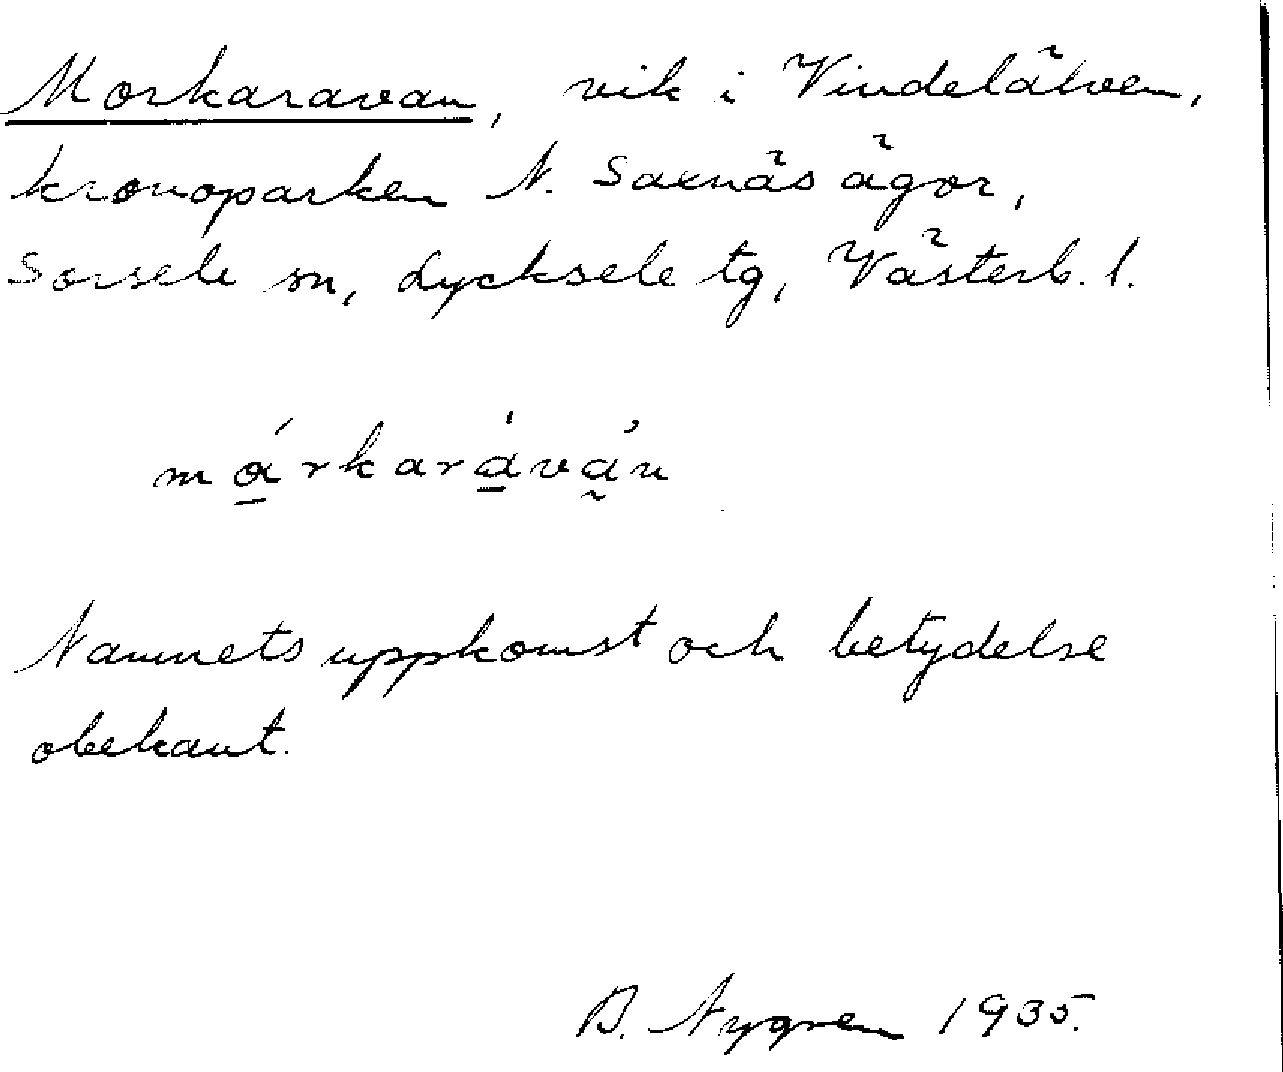 Morkaravan, vik i Vindelälven,
kronoparken N. Saxnäs ägor,
Sorsele sn, Lycksele tg, Västerb. l.
márkaràván
Namnets uppkomst och betydelse
obekant.
B. Nygren 1935.